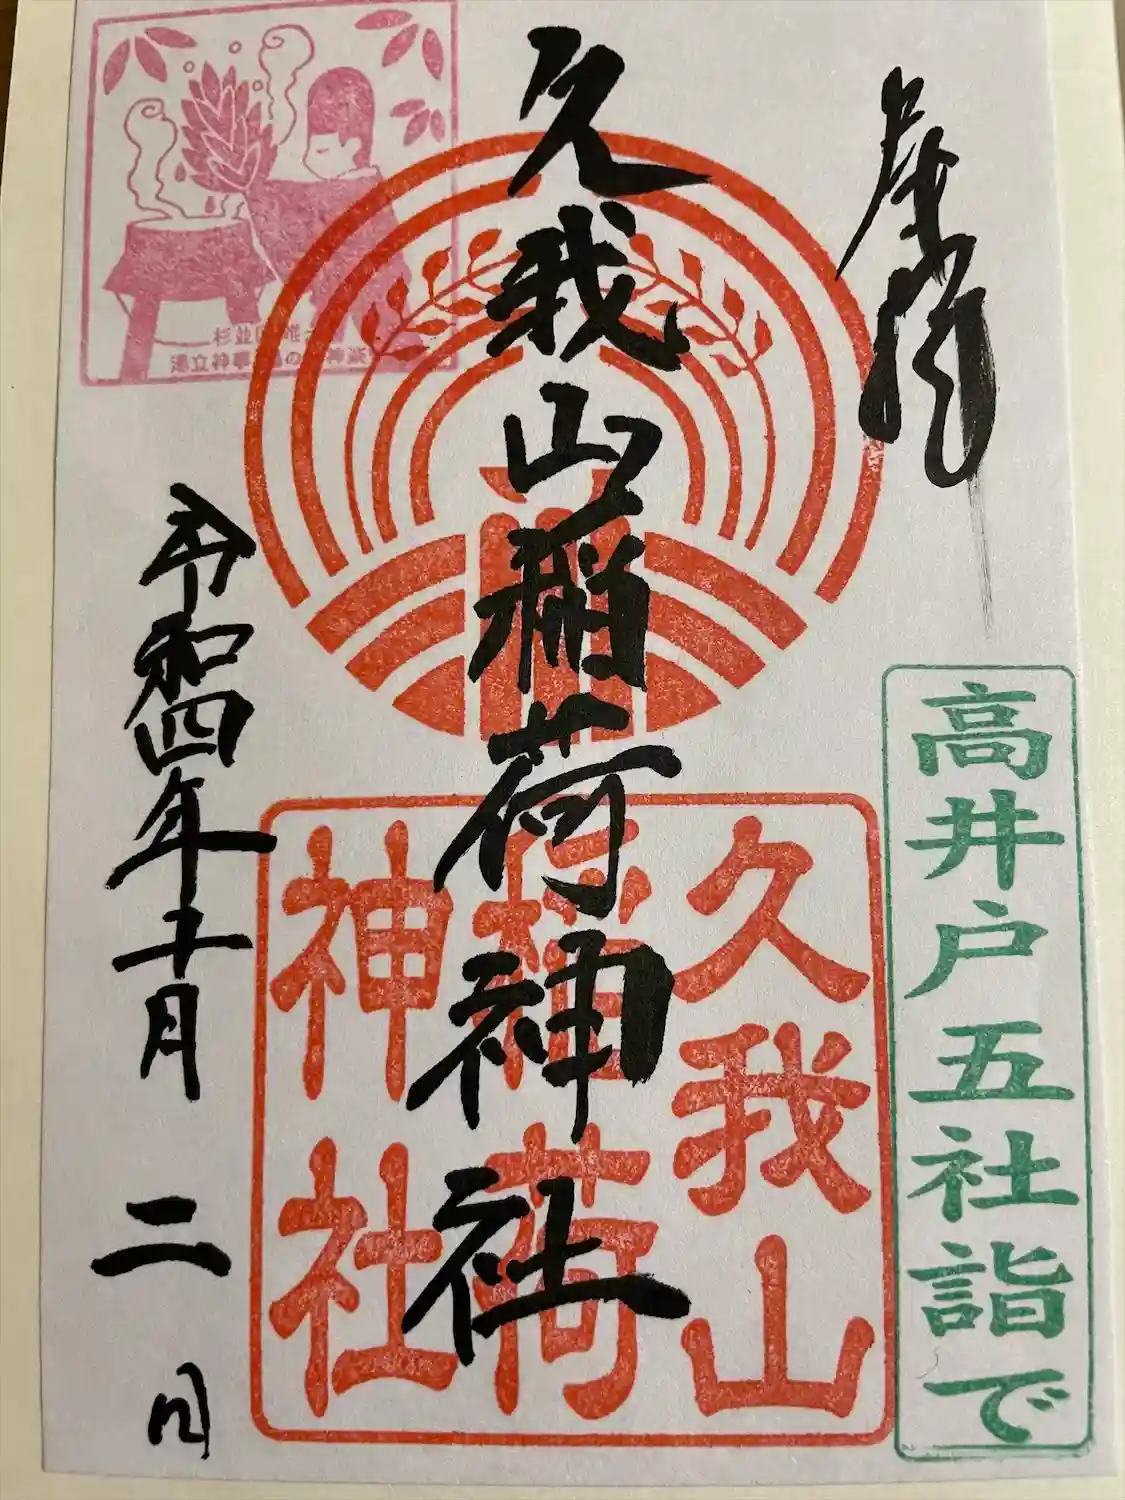 奉拝
高井戸五社詣で
久我山稲荷神社
久我山
稲荷
神社
令和四年十月二日
杉並区唯一
湯立神事